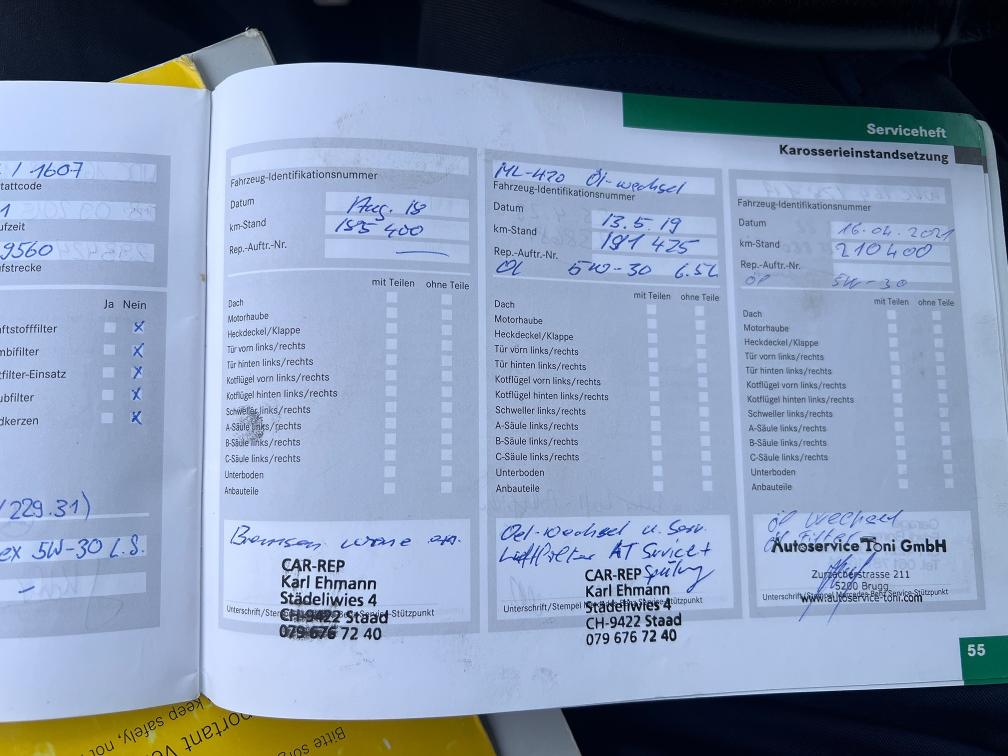 / 1607
tattcode
1
ufzeit
9560
ufstrecke
Ja Nein
aftstofffilter
mbifilter
tfilter-Einsatz
ubfilter
dkerzen
(229.31)
ex 5W-30 L.S.
Serviceheft
Karosserieinstandsetzung
Fahrzeug-Identifikationsnummer
Datum Aug. 18
km-Stand 185 400
Rep.-Auftr.-Nr. —
mit Teilen ohne Teile
Dach
Motorhaube
Heckdeckel/Klappe
Tür vorn links/rechts
Tür hinten links/rechts
Kotflügel vorn links/rechts
Kotflügel hinten links/rechts
Schweller links/rechts
A-Säule links/rechts
B-Säule links/rechts
C-Säule links/rechts
Unterboden
Anbauteile
Bremsen
CAR-REP
Karl Ehmann
Städeliwies 4
Unterschrift/Stempel
Service-Stützpunkt
CH-9422 Staad
079 676 72 40
ML-420 Öl-wechsel
Fahrzeug-Identifikationsnummer
Datum 13.5.19
km-Stand 191 425
Rep.-Auftr.-Nr.
Öl 5W-30 6.5L
mit Teilen ohne Teile
Dach
Motorhaube
Heckdeckel/Klappe
Tür vorn links/rechts
Tür hinten links/rechts
Kotflügel vorn links/rechts
Kotflügel hinten links/rechts
Schweller links/rechts
A-Säule links/rechts
B-Säule links/rechts
C-Säule links/rechts
Unterboden
Anbauteile
Oel-wechsel u. Serv.
Luftfilter AT Service +
Spülung
CAR-REP
Karl Ehmann
Städeliwies 4
Unterschrift/Stempel Mercedes-Benz Service-Stützpunkt
CH-9422 Staad
079 676 72 40
Fahrzeug-Identifikationsnummer
Datum 16.04.2021
km-Stand 210400
Rep.-Auftr.-Nr.
Öl 5W-30
mit Teilen ohne Teile
Dach
Motorhaube
Heckdeckel/Klappe
Tür vorn links/rechts
Tür hinten links/rechts
Kotflügel vorn links/rechts
Kotflügel hinten links/rechts
Schweller links/rechts
A-Säule links/rechts
B-Säule links/rechts
C-Säule links/rechts
Unterboden
Anbauteile
Öl Wechsel
Öl Filter
Autoservice Toni GmbH
Zurzacherstrasse 211
5200 Brugg
Unterschrift/Stempel Mercedes-Benz Service-Stützpunkt
www.autoservice-toni.com
55
portant
keep safely, not
Bitte